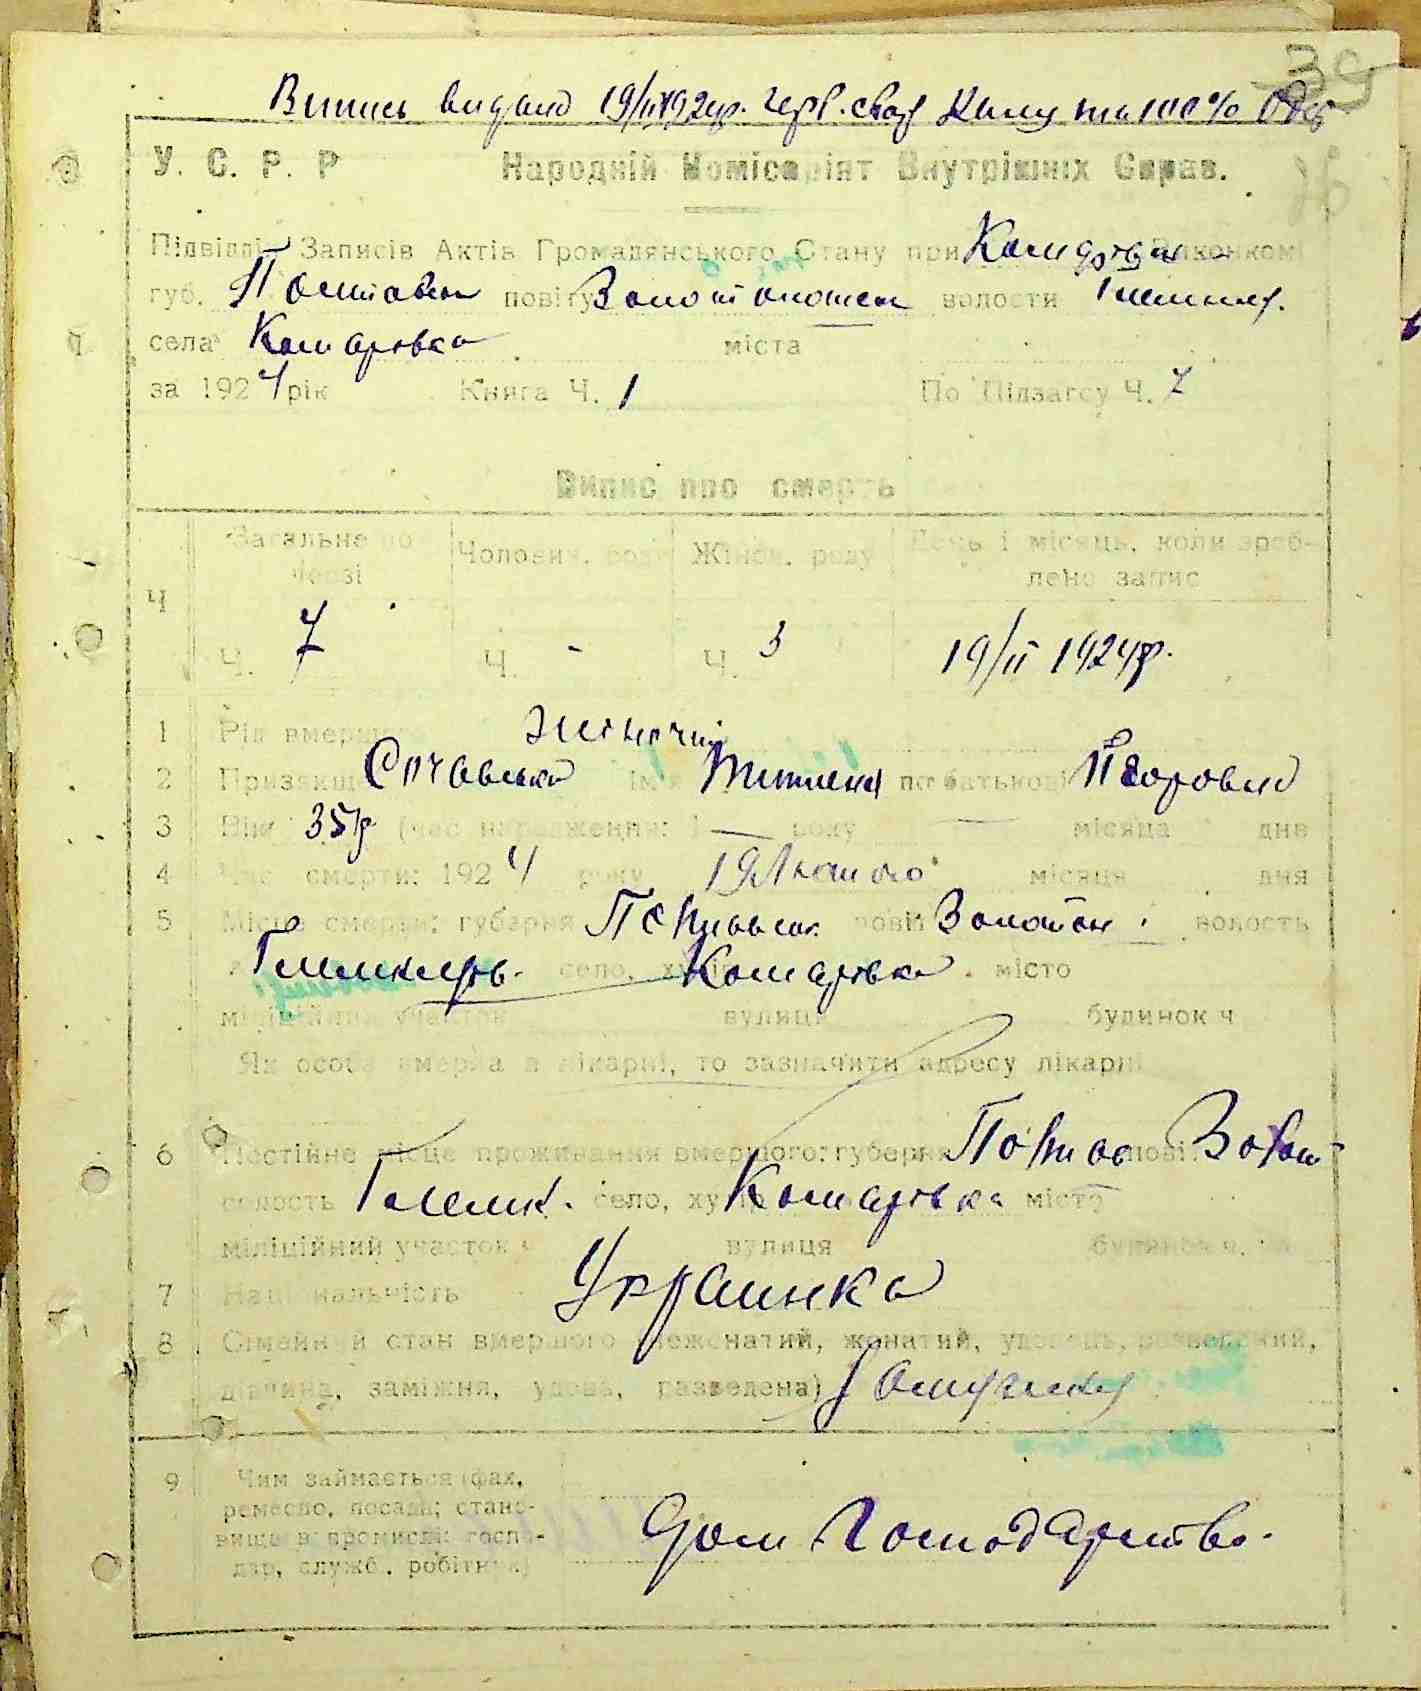 39
Випись видано 19/II 192
У. С. Р. Р Народній Комісаріят Внутрішніх Справ.
Підвідділ Записів Актів Громадянського Стану при Виконкомі
губ. Полтавськ повіту Золотоношськ волости
села Комарівка міста
за 1924 рік Книга Ч. 1 По Підзагсу Ч. 7
Випис про смерть
Ч Загальне по черзі Чоловіч. роду Жіноч. роду День і місяць, коли зроблено запис
Ч. 7 Ч. - Ч. 3 19/II 1924р.
1 Рід вмерш жіночий
2 Призвище ім'я по батькові
3 Вік 35р (час народження: 1 — року — місяця дня
4 Час смерти: 1924 року 19 Лютого місяця дня
5 Місце смерти: губерня Полтавськ повіт Золотон волость
Гельмязів. село, хутір Комарівка місто
міліційний участок вулиця будинок ч
Як особа вмерла в лікарні, то зазначити адресу лікарні
6 Постійне місце проживання вмершого: губерня Полтав повіт Золот
волость Гельмя. село, хутір Комарівка місто
міліційний участок ч вулиця будинок ч.
7 Національність Українка
8 Сімейний стан вмершого (нежонатий, жонатий, удовець, разведений,
дівчина, заміжня, удова, разведена) Замужня
9 Чим займається (фах,
ремесло, посада; стано-
вище в промислі: госпо-
дар, служб., робітник)
Дом Господарство.